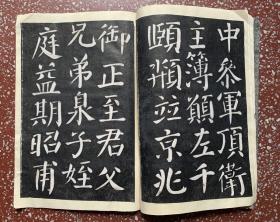 中參軍頂衛
主簿願左千
頤並京兆
御正至君父
兄弟衆子姪
庭益期昭甫